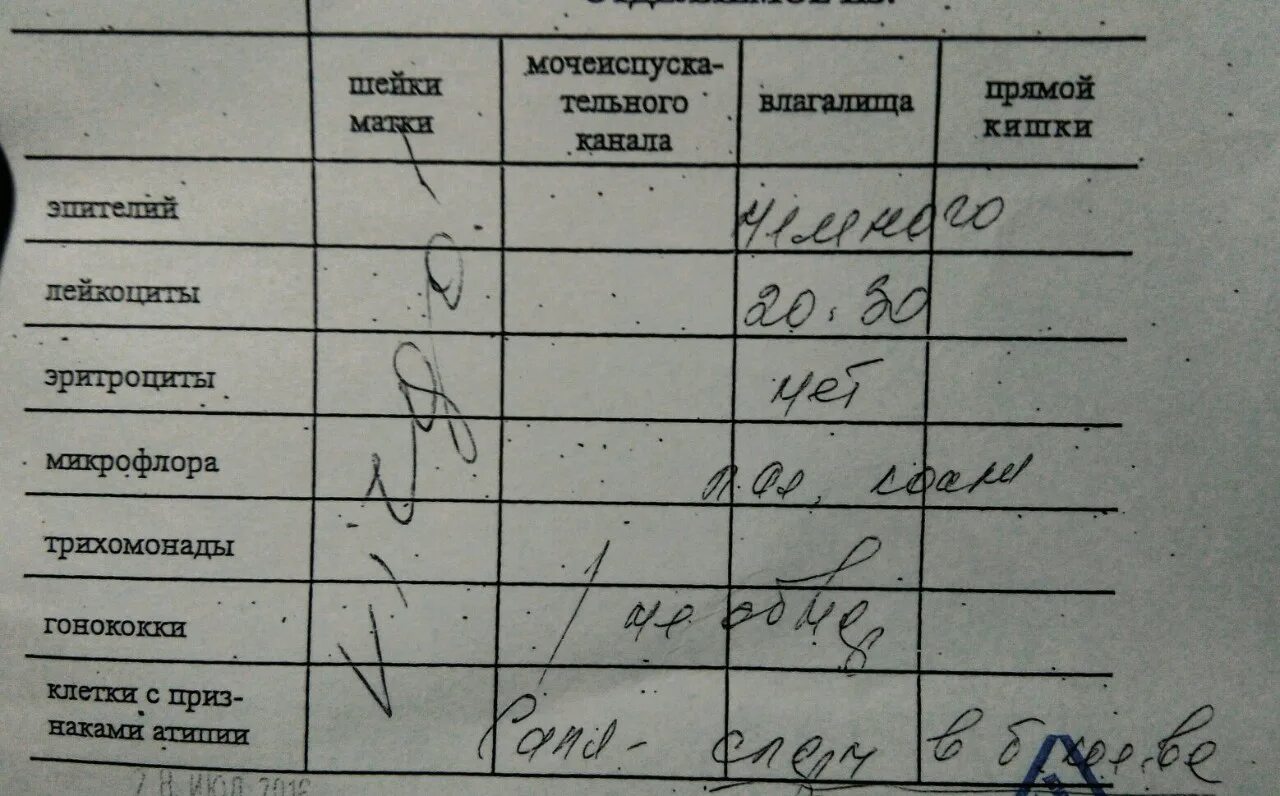 шейки матки
мочеиспуска-
тельного
канала
влагалища
прямой
кишки
эпителий немного
лейкоциты 20-30
эритроциты нет
микрофлора
трихомонады
гонококки не обн
клетки с приз-
наками атипии
в б. кол-ве
28 ИЮЛ 2016